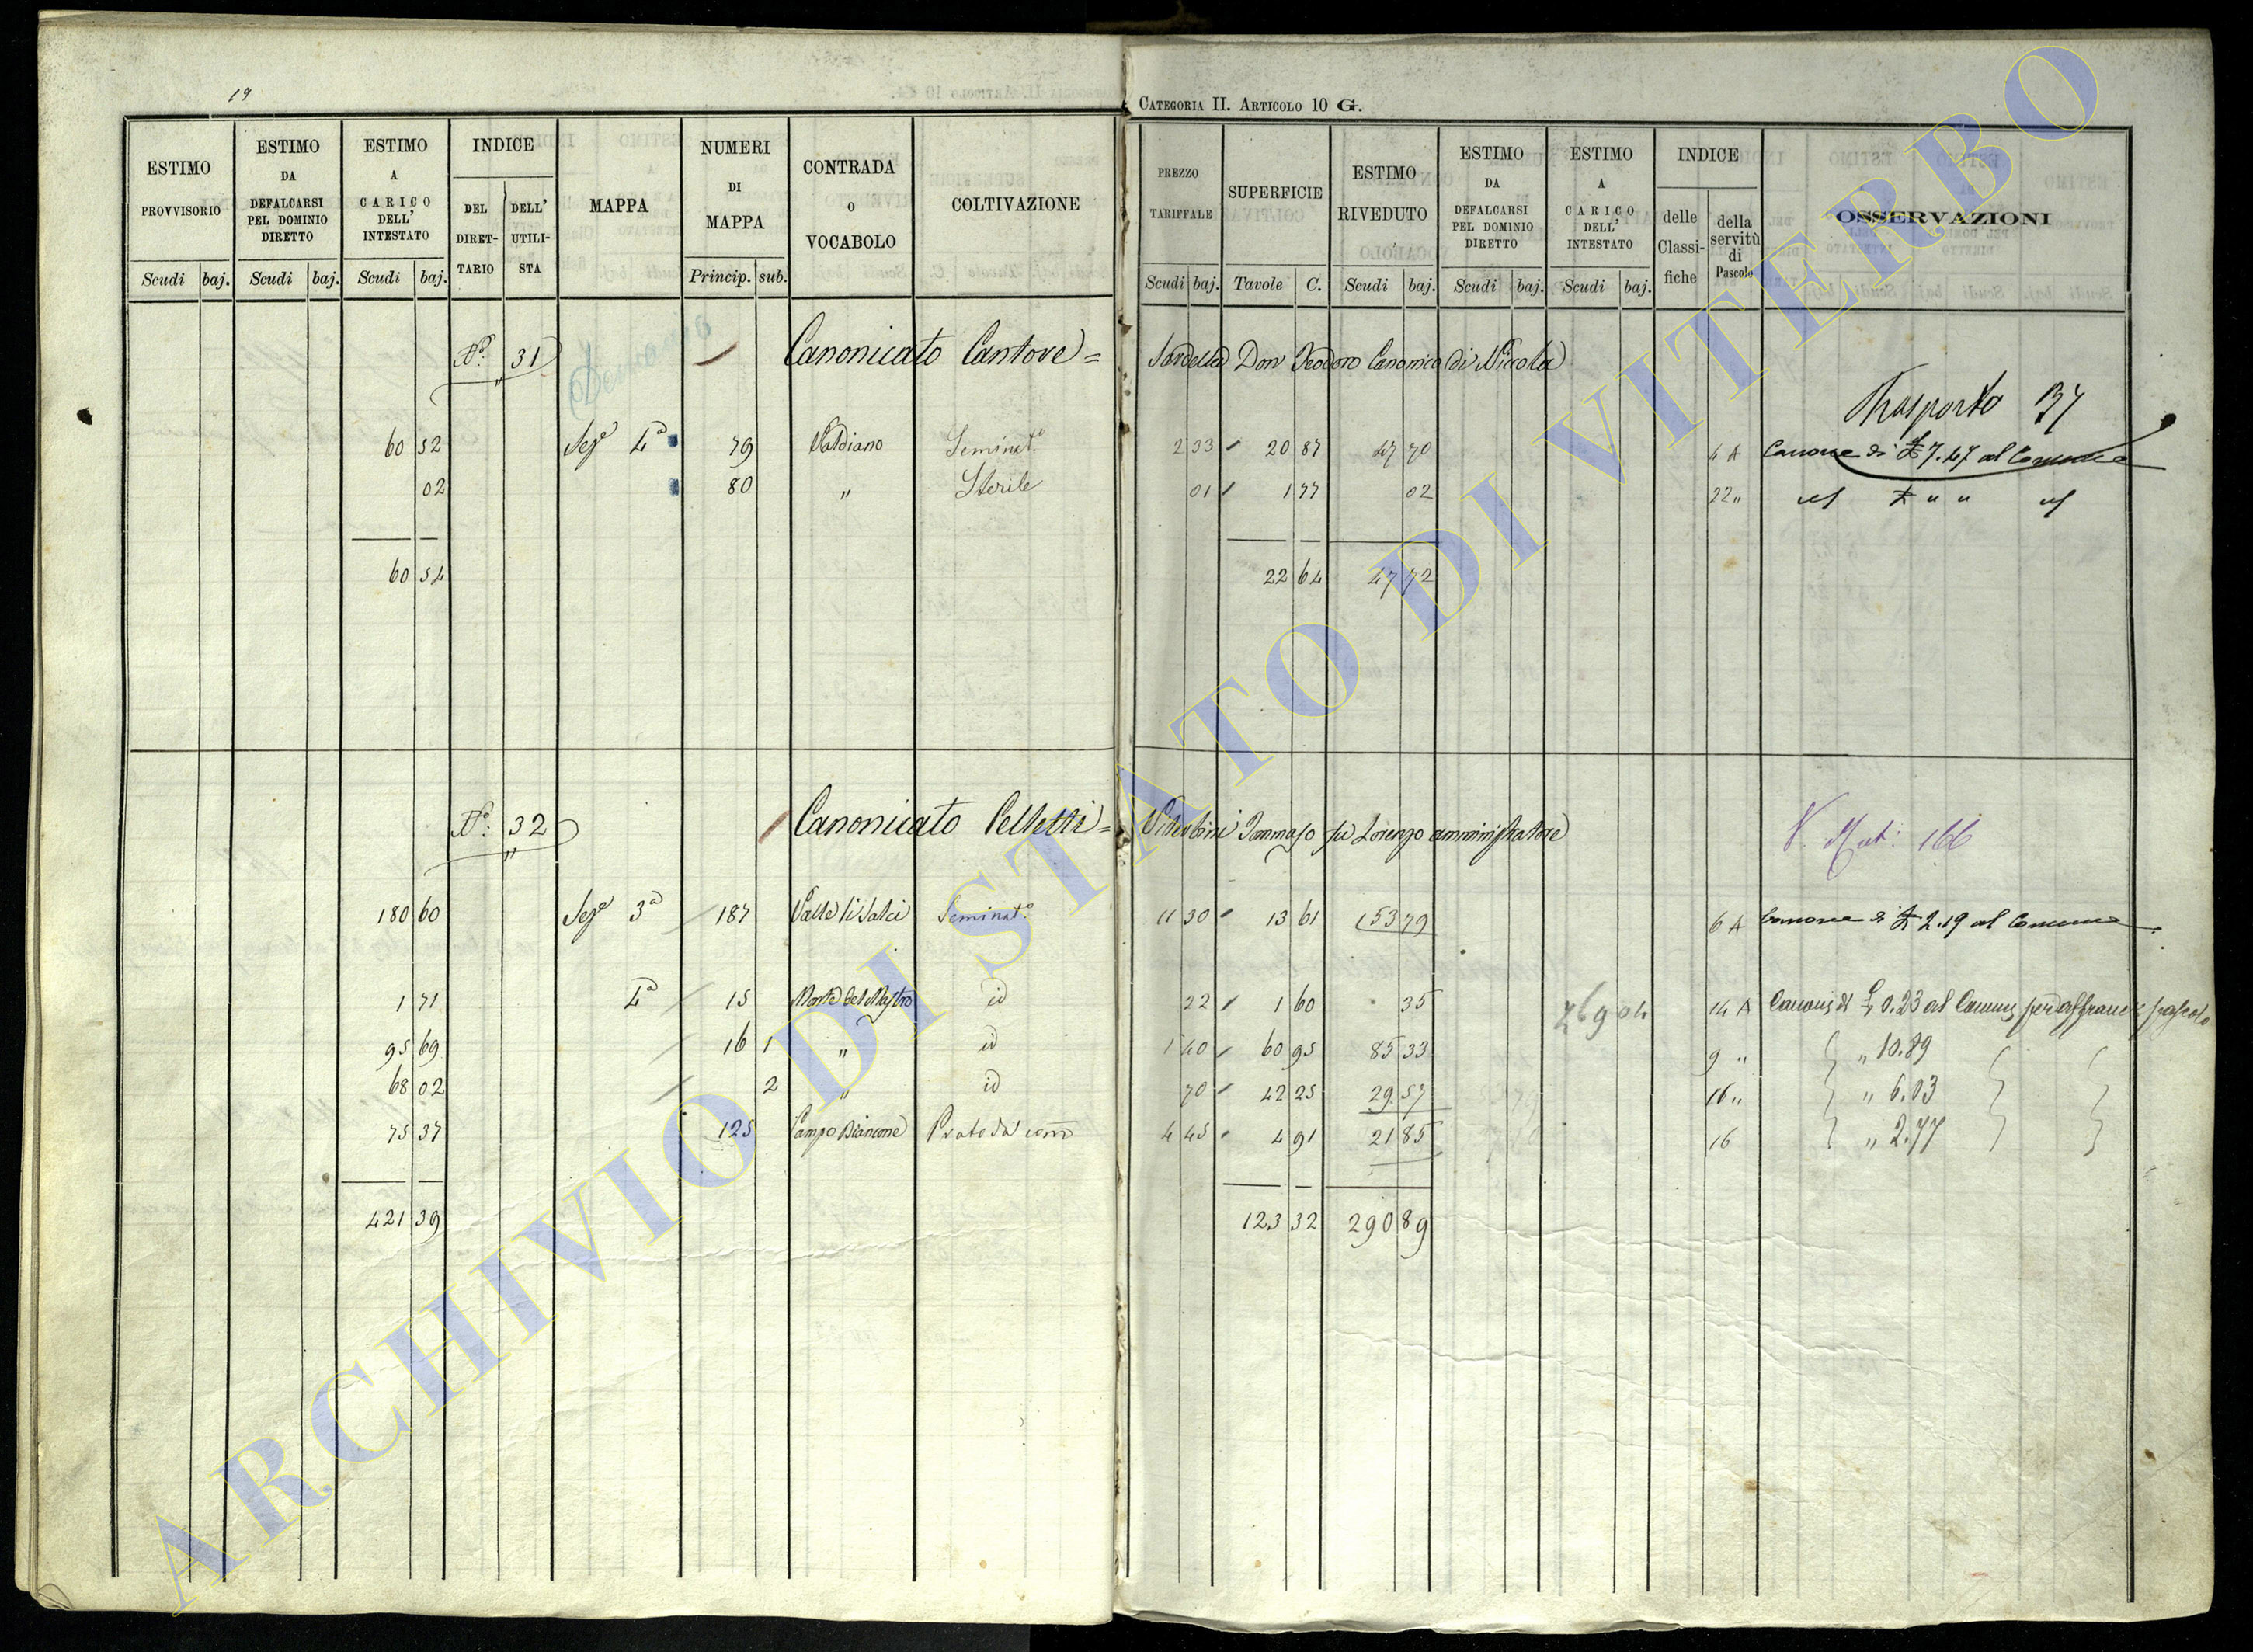 19
CATEGORIA II. ARTICOLO 10 G.
ESTIMO PROVVISORIO Scudi baj.
ESTIMO DA DEFALCARSI PEL DOMINIO DIRETTO Scudi baj.
ESTIMO A CARICO DELL' INTESTATO Scudi baj.
INDICE DEL DIRETTARIO DELL' UTILISTA
MAPPA
NUMERI DI MAPPA Princip. sub.
CONTRADA O VOCABOLO
COLTIVAZIONE
PREZZO TARIFFALE Scudi baj.
SUPERFICIE Tavole C.
ESTIMO RIVEDUTO Scudi baj.
ESTIMO DA DEFALCARSI PEL DOMINIO DIRETTO Scudi baj.
ESTIMO A CARICO DELL' INTESTATO Scudi baj.
INDICE delle Classifiche della servitù di Pascolo
OSSERVAZIONI
N.º 31 Canonicato Cantore = Sardella Don Teodoro Canonico di Nicola
Trasporto 137
60 52 Sez.e 4ª 79 Valdiano Seminat.º 2 33 20 87 47 70 4 A Canone di £ 7.47 al Comune
02 80 " Sterile 01 1 77 02 22 "
60 54 22 64 47 72
N.º 32 Canonicato Pelletti = Tommaso fu Lorenzo amministratore
V. Mat: 166
180 60 Sez.e 3ª 187 Valle li Salci Seminat.º 11 30 13 61 153 79 6 A Canone di £ 2.19 al Comune
1 71 4ª 15 Monte del Mastro id 22 1 60 35 14 A Canone di £ 0.23 al Comune per affranc pascolo
95 69 16 1 " id 1 40 60 95 85 33 9 " " 10.89
68 02 2 " id 70 42 25 29 57 16 " " 6.03
75 37 125 Campo Biancone Prato 4 45 4 91 21 85 16 " 2.77
269 04
421 39 123 32 290 89
ARCHIVIO DI STATO DI VITERBO